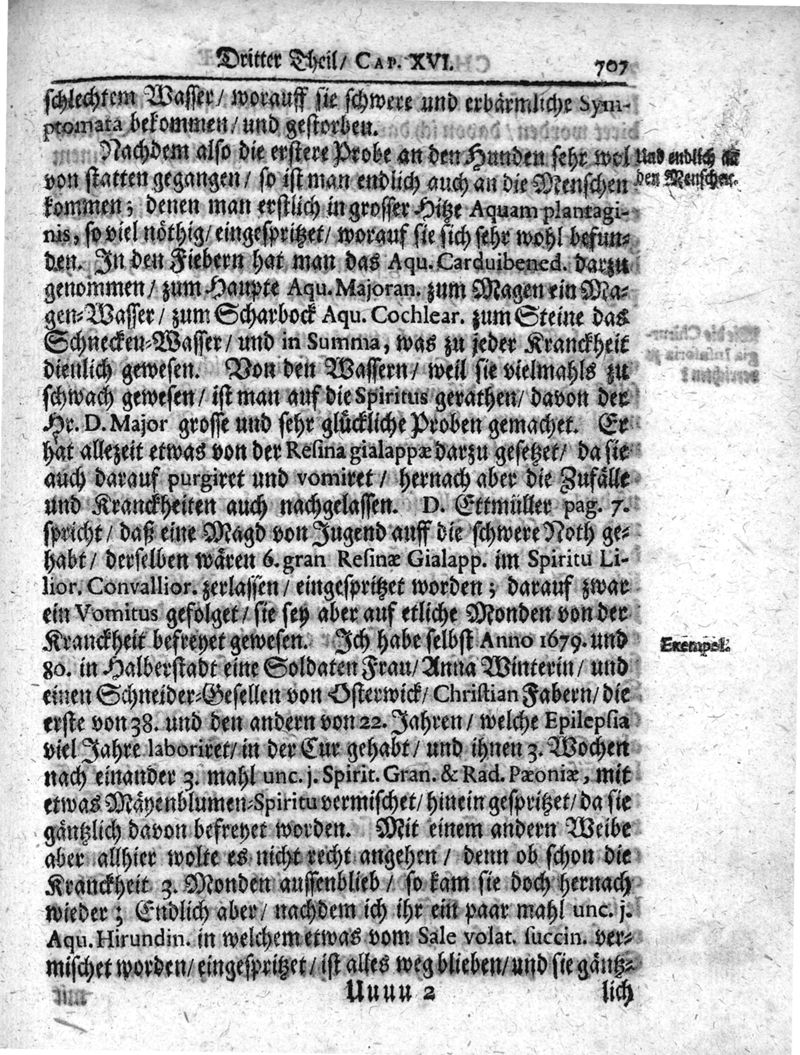 Dritter Theil/ CAP. XVI. 707
schlechtem Wasser/ worauff sie schwere und erbärmliche Sym-
ptomata bekommen/ und gestorben.
Nachdem also die erstere Probe an den Hunden sehr wol
von statten gegangen/ so ist man endlich auch an die Menschen
kommen; denen man erstlich in grosser Hitze Aquam plantagi-
nis, so viel nöthig/ eingespritzet/ worauf sie sich sehr wohl befun-
den. In den Fiebern hat man das Aqu. Carduibened. darzu
genommen/ zum Haupte Aqu. Majoran. zum Magen ein Ma-
gen-Wasser/ zum Scharbock Aqu. Cochlear. zum Steine das
Schnecken-Wasser/ und in Summa, was zu jeder Kranckheit
dienlich gewesen. Von den Wassern/ weil sie vielmahls zu
schwach gewesen/ ist man auf die Spiritus gerathen/ davon der
Hr. D. Major grosse und sehr glückliche Proben gemachet. Er
hat allezeit etwas von der Resina gialappæ darzu gesetzet/ da sie
auch darauf purgiret und vomiret/ hernach aber die Zufälle
und Kranckheiten auch nachgelassen. D. Ettmüller pag. 7.
spricht/ daß eine Magd von Jugend auff die schwere Noth ge-
habt/ derselben wären 6. gran Resinæ Gialapp. im Spiritu Li-
lior. Convallior. zerlassen/ eingespritzet worden; darauf zwar
ein Vomitus gefolget/ sie sey aber auf etliche Monden von der
Kranckheit befreyet gewesen. Ich habe selbst Anno 1679. und
80. in Halberstadt eine Soldaten Frau/ Anna Winterin/ und
einen Schneider-Gesellen von Osterwick/ Christian Fabern/ die
erste von 38. und den andern von 22. Jahren/ welche Epilepsia
viel Jahre laboriret/ in der Cur gehabt/ und ihnen 3. Wochen
nach einander 3. mahl unc. j. Spirit. Gran. & Rad. Pæoniæ, mit
etwas Mäyenblumen-Spiritu vermischet/ hinein gespritzet/ da sie
gäntzlich davon befreyet worden. Mit einem andern Weibe
aber allhier wolte es nicht recht angehen/ denn ob schon die
Kranckheit 3. Monden aussenblieb/ so kam sie doch hernach
wieder; Endlich aber/ nachdem ich ihr ein paar mahl unc. j.
Aqu. Hirundin. in welchem etwas vom Sale volat. succin. ver-
mischet worden/ eingespritzet/ ist alles weg blieben/ und sie gäntz-
Uuuu 2 lich
Und endlich an
den Menschen.
Exempel.